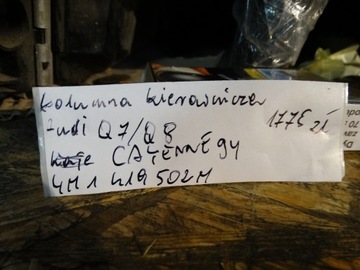 Kolumna kierownicza
Audi Q7/Q8 1775 zł
CAYENNE 9Y
4M1 419 502M